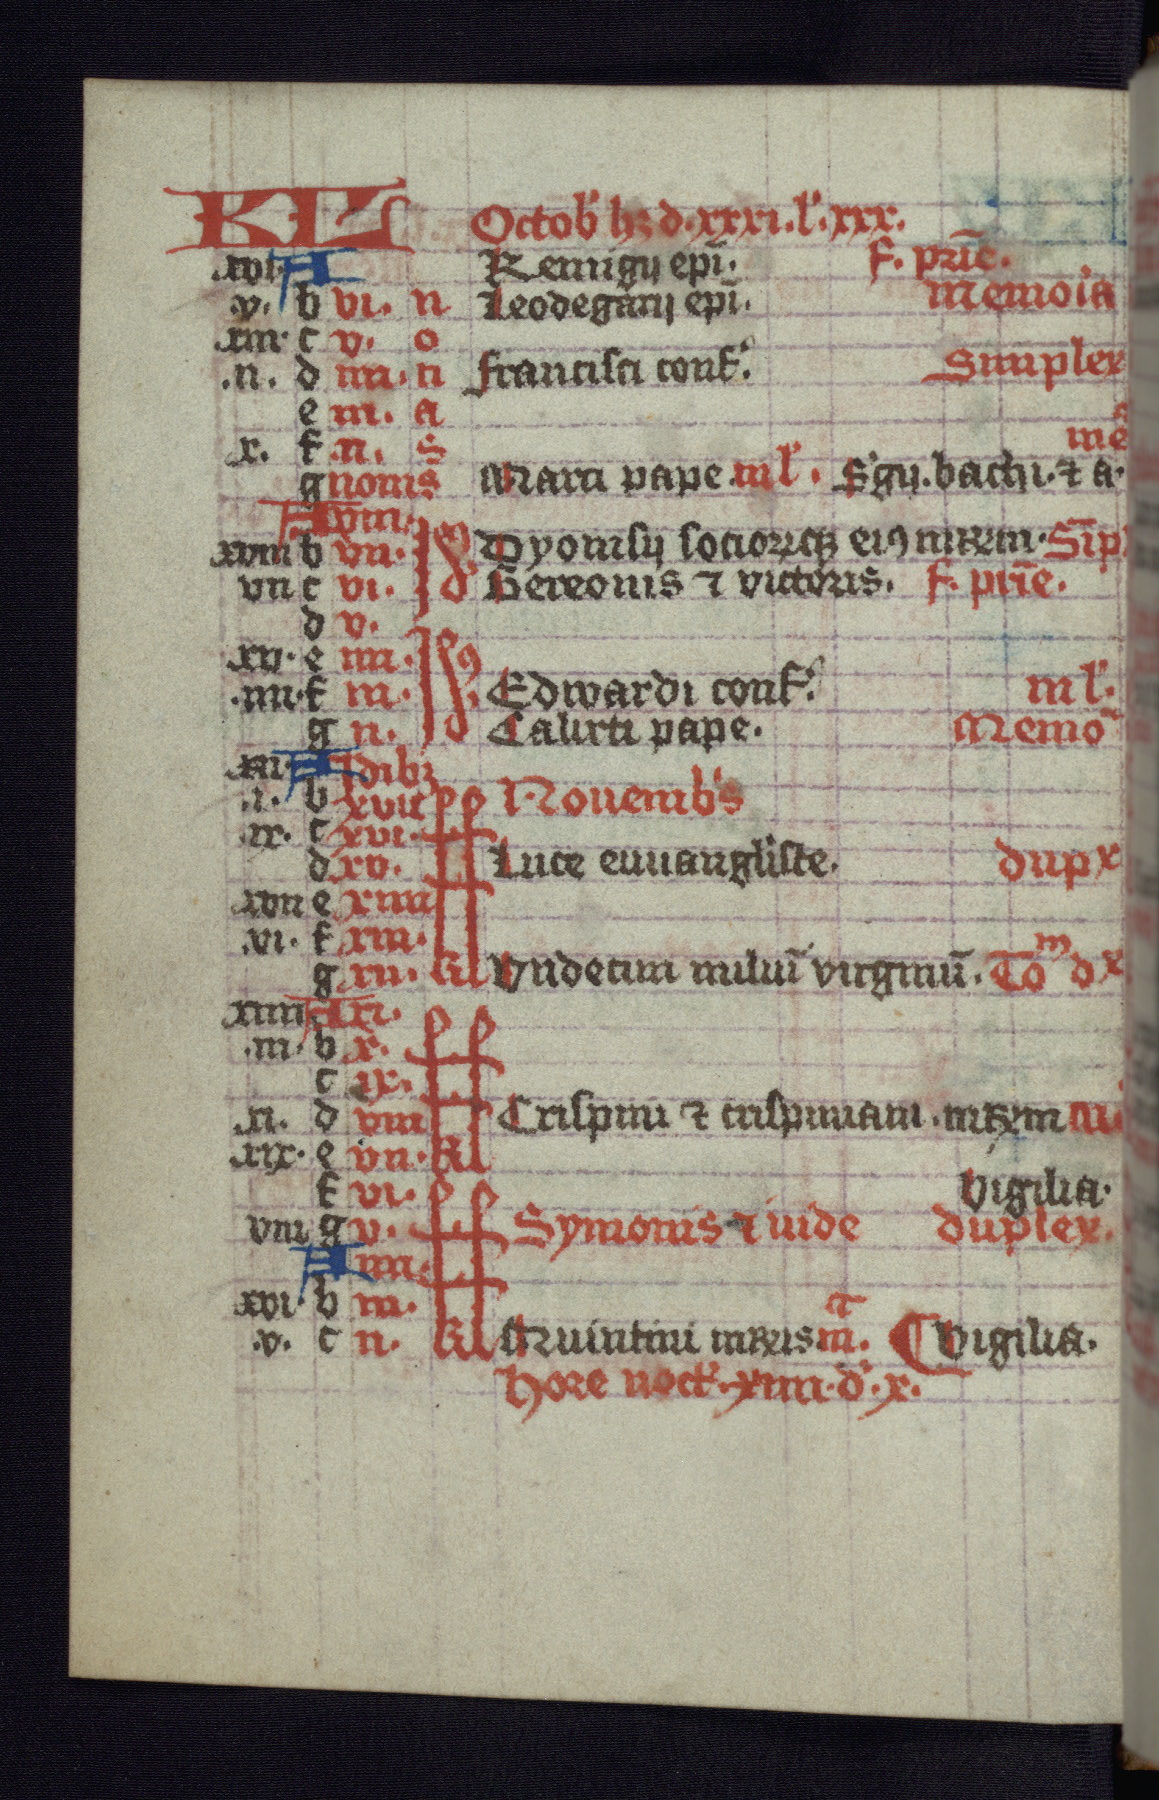 KL Octob' hȝ d. xxxi. l'. xxx.
xvi. A Remigij ep̄i. f. prīe.
v. b vi. n Leodegarij ep̄i. memoīa
xiii. c v. o
.ii. d iiii. n francisci conf'. Simplex
e iii. a
x. f ii. s me
g nonis Marci pape. ml'. S'gij. bachi. ⁊ a.
A viii.
xviii b vii. Dyonisij sociorumqȝ eiꝰ mr̄m. Sīp
vii c vi. Gereonis ⁊ victoris. f. prīe.
d v.
xv. e iiii.
.iiii. f iii. Edwardi conf'. ml'.
g ii. Calixti pape. Memo
xii. A Idibȝ
.i. b xvii Nouemb's
.ix. c xvi.
d xv. Luce euuangl'iste. dupx
xvii e xiiii
.vi. f xiii.
g xii. kl Vndecim miliū virginū. Tom dx
xiiii A xi.
.iii. b x.
c ix.
.xi. d viii Crispini ⁊ crispiniani. mr̄m
xix. e vii. kl
f vi. Vigilia.
viii g v. Symonis ⁊ iude duplex.
A iiii.
xvi. b iii.
.v. c ii. kl Qvuintini mr̄is m̄. Vigilia.
Hore noct'. xiiii. d'. x.